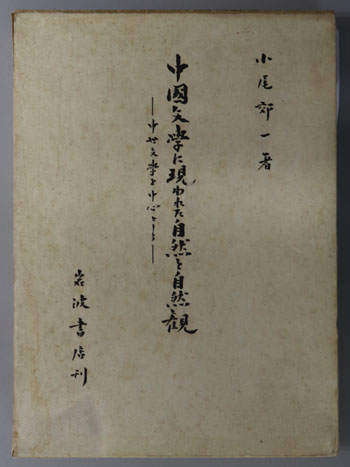 小尾郊一著
中国文學に現われた自然と自然観
——中世文學を中心として——
岩波書店刊